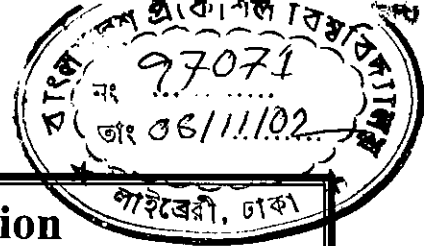 বাংলাদেশ প্রকৌশল বিশ্ববিদ্যালয়
নং 97071
তাং 06/11/02
লাইব্রেরী, ঢাকা
ion